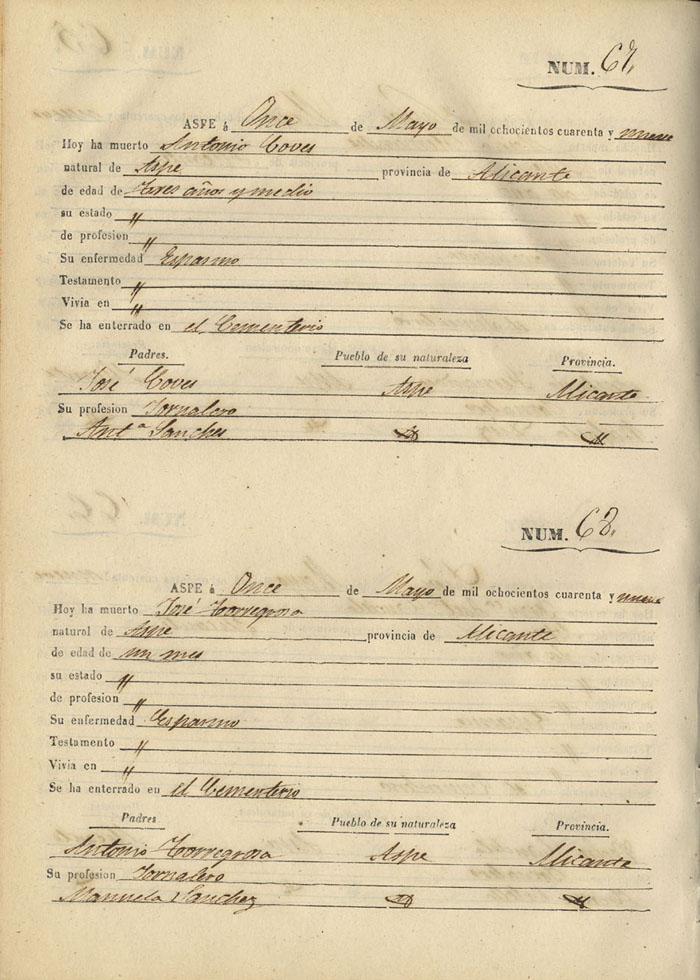 NUM. 67.
ASPE á Once de Mayo de mil ochocientos cuarenta y nueve
Hoy ha muerto Antonio Coves
natural de Aspe provincia de Alicante
de edad de Tres años y medio
su estado "
de profesion "
Su enfermedad Espasmo
Testamento "
Vivia en "
Se ha enterrado en el Cementerio
Padres. Pueblo de su naturaleza Provincia.
José Coves Aspe Alicante
Su profesion Jornalero
Ant.ª Sanches
NUM. 68.
ASPE á Once de Mayo de mil ochocientos cuarenta y nueve
Hoy ha muerto José Torregrosa
natural de Aspe provincia de Alicante
de edad de un mes
su estado "
de profesion "
Su enfermedad Espasmo
Testamento "
Vivia en "
Se ha enterrado en el Cementerio
Padres Pueblo de su naturaleza Provincia.
Antonio Torregrosa Aspe Alicante
Su profesion Jornalero
Manuela Sanchez